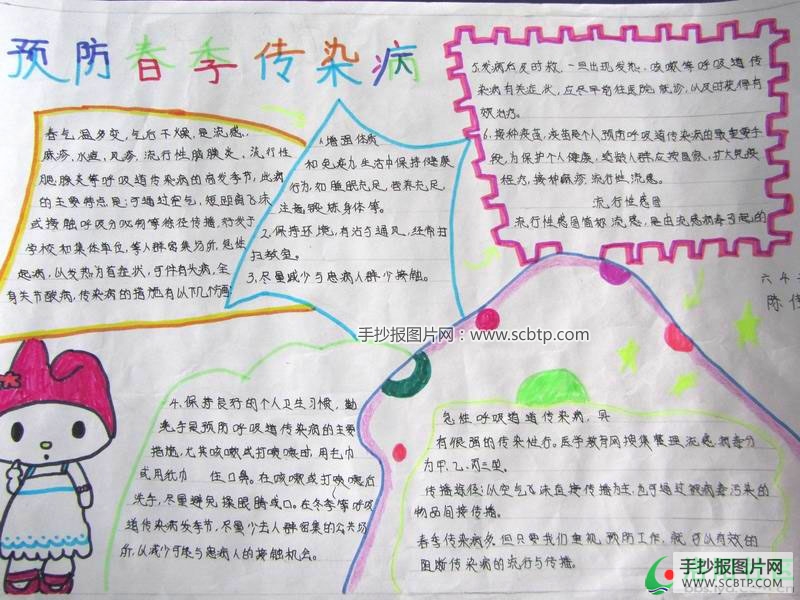 预防春季传染病
春气温多变,气后干燥,是流感、
麻疹、水痘、风疹、流行性脑膜炎、流行性
腮腺炎等呼吸道传染病的高发季节,此病
的主要特点是:可通过空气,短距离飞沫
或接触呼吸分泌物等途径传播,好发于
学校和集体单位,等人群密集场所,急性
起病,以发热为首症状,可伴有头痛,全
身关节酸痛,传染病的措施有以下几个方面:
1.增强体质
和免疫力生活中保持健康
行为,如睡眠充足,营养充足,
注意锻炼身体等。
2.保持环境,有沾于通风,经常打
扫教室。
3.尽量减少与患病人群少接触。
5.发病后及时救,一旦出现发热、咳嗽等呼吸道传
染病有关症状,应尽早前往医院就诊,以及时获得有
效治疗。
6.接种疫苗,疫苗是个人预防呼吸道传染病的最重要手
段,为保护个人健康,适龄人群应按照
程序,接种麻疹、流行性、流感。
流行性感冒
流行性感冒简称流感,是由流感病毒引起的
六4
陈佳
手抄报图片网:www.scbtp.com
4.保持良好的个人卫生习惯,勤
洗手是预防呼吸道传染病的主要
措施,尤其咳嗽或打喷嚏时,用毛巾
或用纸巾 住口鼻。在咳嗽或打喷嚏后
洗手,尽量避免揉眼睛或口。在冬季等呼吸
道传染病发季节,尽量少去人群密集的公共场
所,以减少可能与患病人的接触机会。
急性呼吸道道传染病,具
有很强的传染性行。医学教育网搜集管理流感病毒分
为甲、乙、丙三型。
传播途径:以空气飞沫直接传播为主,也可通过被病毒污染的
物品间接传播。
春季传染病多,但只要我们重视,预防工作,就可以有效的
阻断传染病的流行与传播。
手抄报图片网
WWW.SCBTP.COM